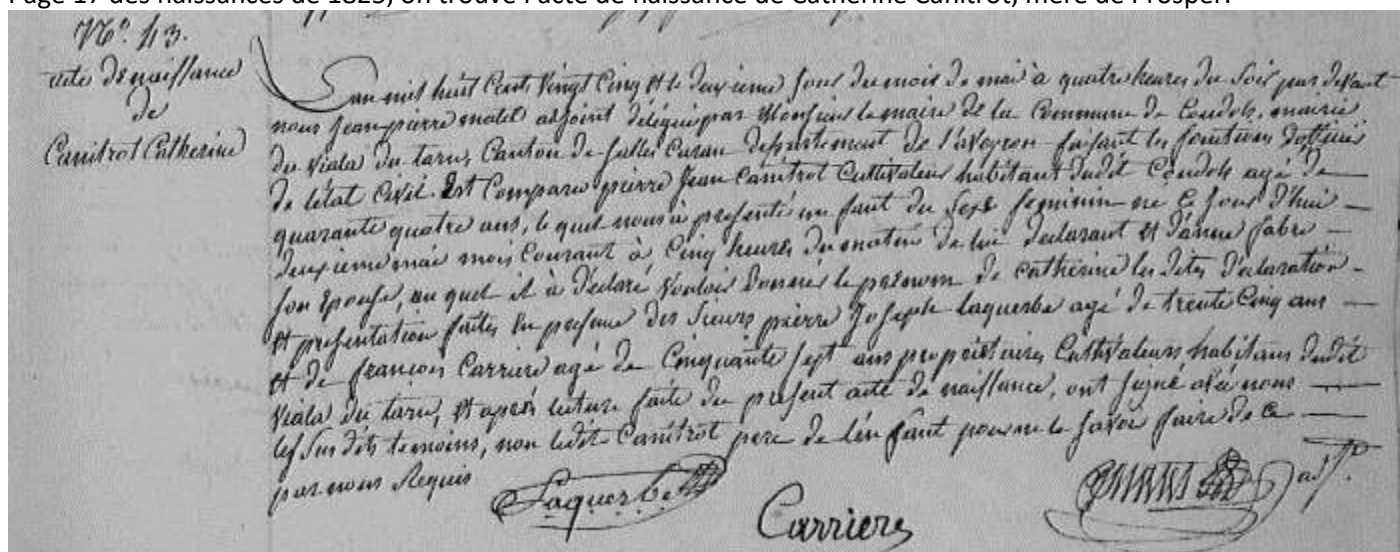 Page 17 des naissances de 1825, on trouve l'acte de naissance de Catherine Canitrot, mère de Prosper.
N.º 43.
acte de naissance
de
Canitrot Catherine
L'an mil huit Cents Vingt Cinq et le deuxieme Jour du mois de mai à quatre heures du Soir par devant
nous Jean pierre malet adjoint délégué par Monsieur le maire de la Commune de Coudols, mairie
du Viala du tarn, Canton de Salles Curan departement de l'aveyron faisant les fonctions d'officier
de létat Civil. Est Comparu pierre Jean Canitrot Cultivateur habitant dudit Coudols agé de
quarante quatre ans, le quel nous à presenté un faut du Sexe feminin né le Jour d'hui
deuxieme mai mois Courant à Cinq heures du matin de lui declarant et d'anne fabre
Son Epouse, au quel il à declaré Vouloir donner le prénom de Catherine les dites declaration
et presentation faites En presence des Sieurs pierre Joseph Laquerbe agé de trente Cinq ans
et de françois Carriere agé de Cinquante Sept ans propriétaires Cultivateurs habitans dudit
Viala du tarn, et après lecture faite du present acte de naissance, ont signé avec nous
les Sus dits temoins, non ledit Canitrot pere de lenfant pour ne le savoir faire de ce
par nous Requis
Laquerbe
Carriere
adj.